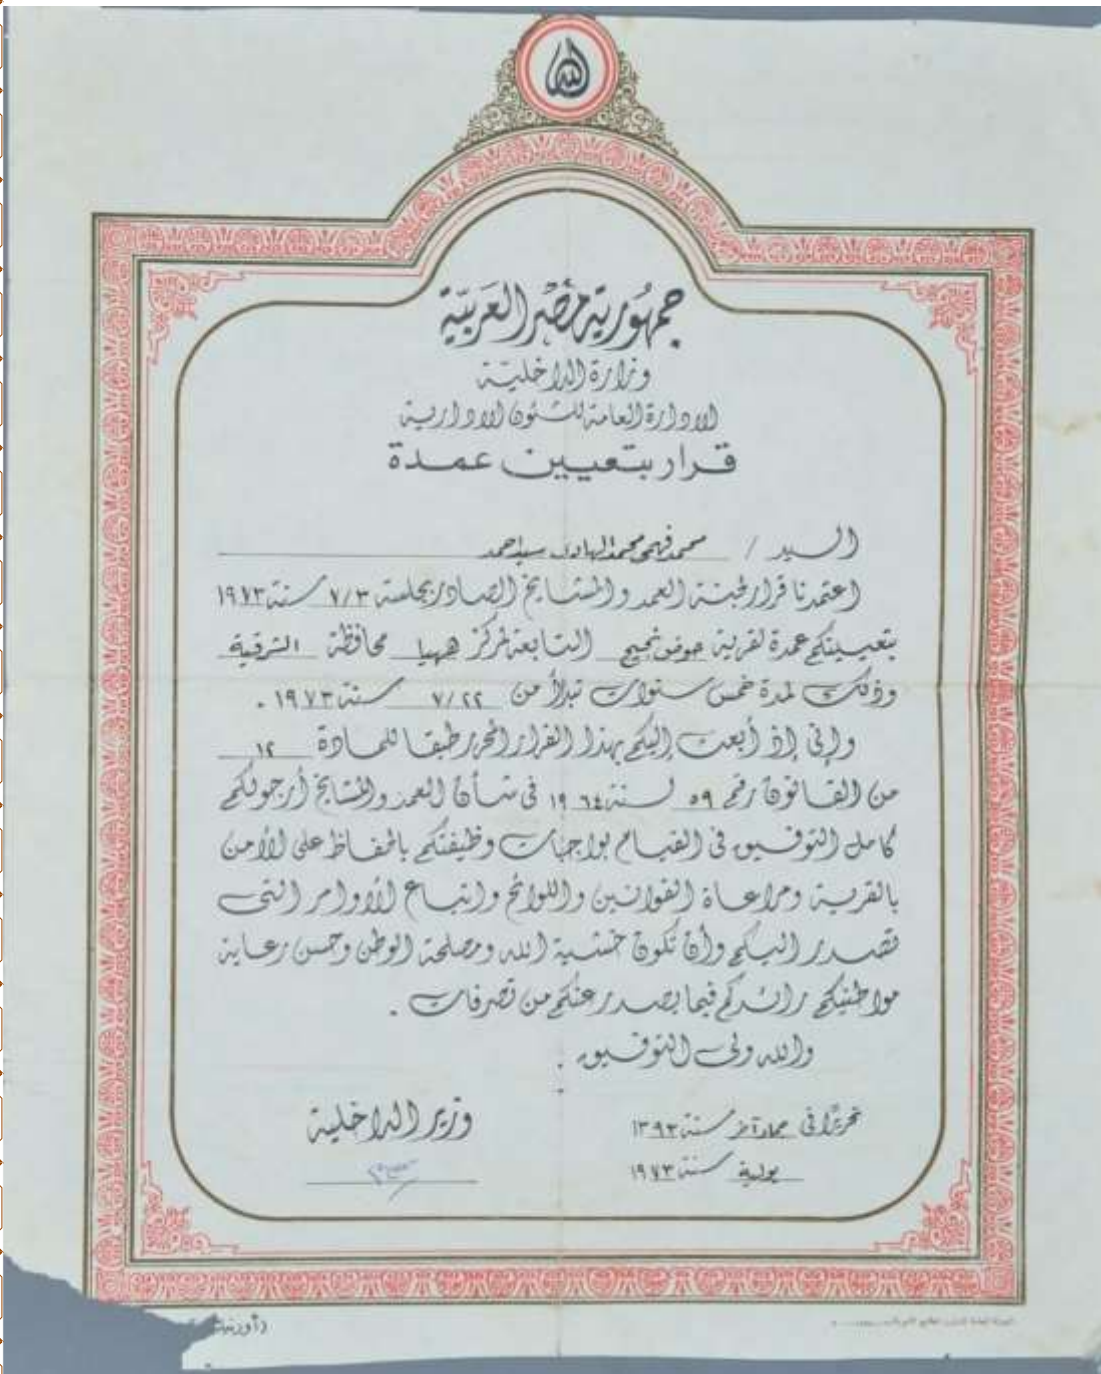 الله
جمهورية مصر العربية
وزارة الداخلية
الادارة العامة للشئون الادارية
قرار بتعيين عمدة
السيد / محمد فهمى محمد الهادى سيد احمد
اعتمدنا قرار لجنة العمد والمشايخ الصادر بجلسة ٧/٣ سنة ١٩٧٣
بتعيينكم عمدة لقرية حوض نجيح التابعة لمركز ههيا محافظة الشرقية
وذلك لمدة خمس سنوات تبدأ من ٧/٢٢ سنة ١٩٧٣ .
وإنى إذ أبعث إليكم بهذا القرار المحرر طبقا للمادة ١٢
من القانون رقم ٥٩ لسنة ١٩٦٤ فى شأن العمد والمشايخ أرجو لكم
كامل التوفيق فى القيام بواجبات وظيفتكم بالحفاظ على الأمن
بالقرية ومراعاة القوانين واللوائح واتباع الأوامر التى
تصدر اليكم وأن تكون خشية الله ومصلحة الوطن وحسن رعاية
مواطنيكم رائدكم فيما يصدر عنكم من تصرفات .
والله ولى التوفيق .
تحريرًا فى جماد آخر سنة ١٣٩٣
يولية سنة ١٩٧٣
وزير الداخلية